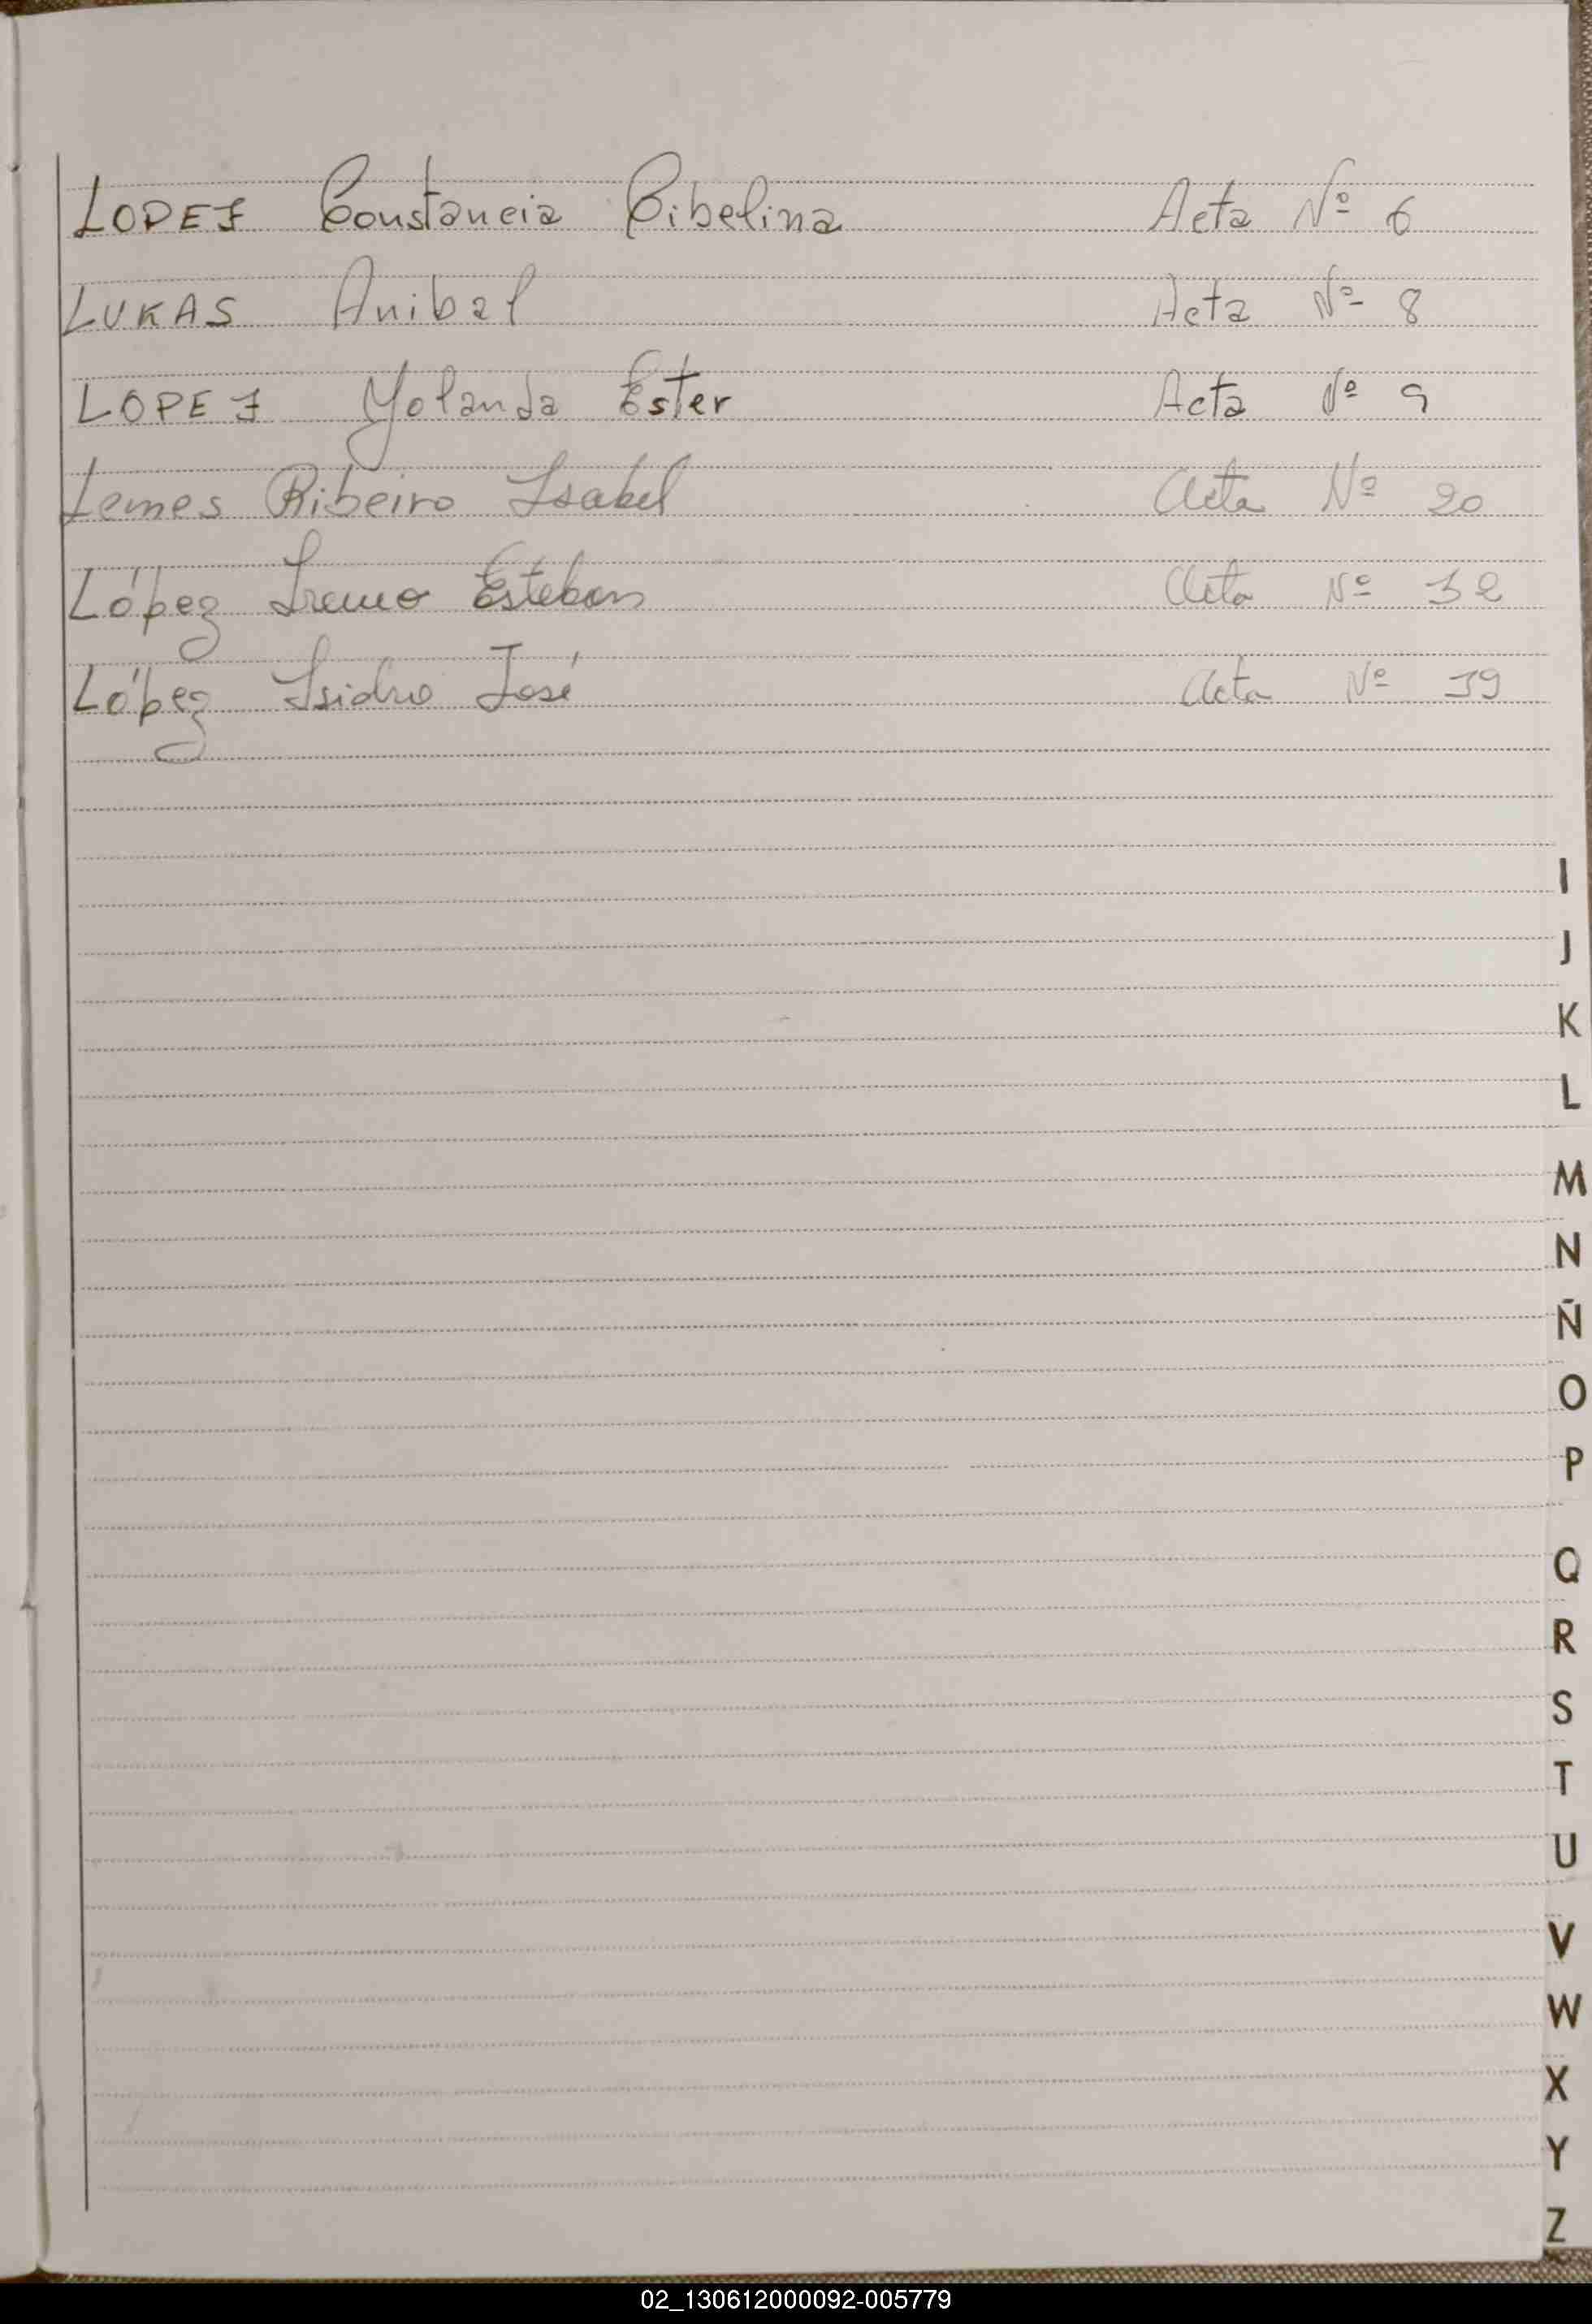 LOPEZ Constancia Cibelina Acta Nº 6
LUKAS Anibal Acta Nº 8
LOPEZ Yolanda Ester Acta Nº 9
Lemes Ribeiro Isabel Acta Nº 20
López Esteban Acta Nº 32
López Isidro José Acta Nº 39
I
J
K
L
M
N
Ñ
O
P
Q
R
S
T
U
V
W
X
Y
Z
02_130612000092-005779